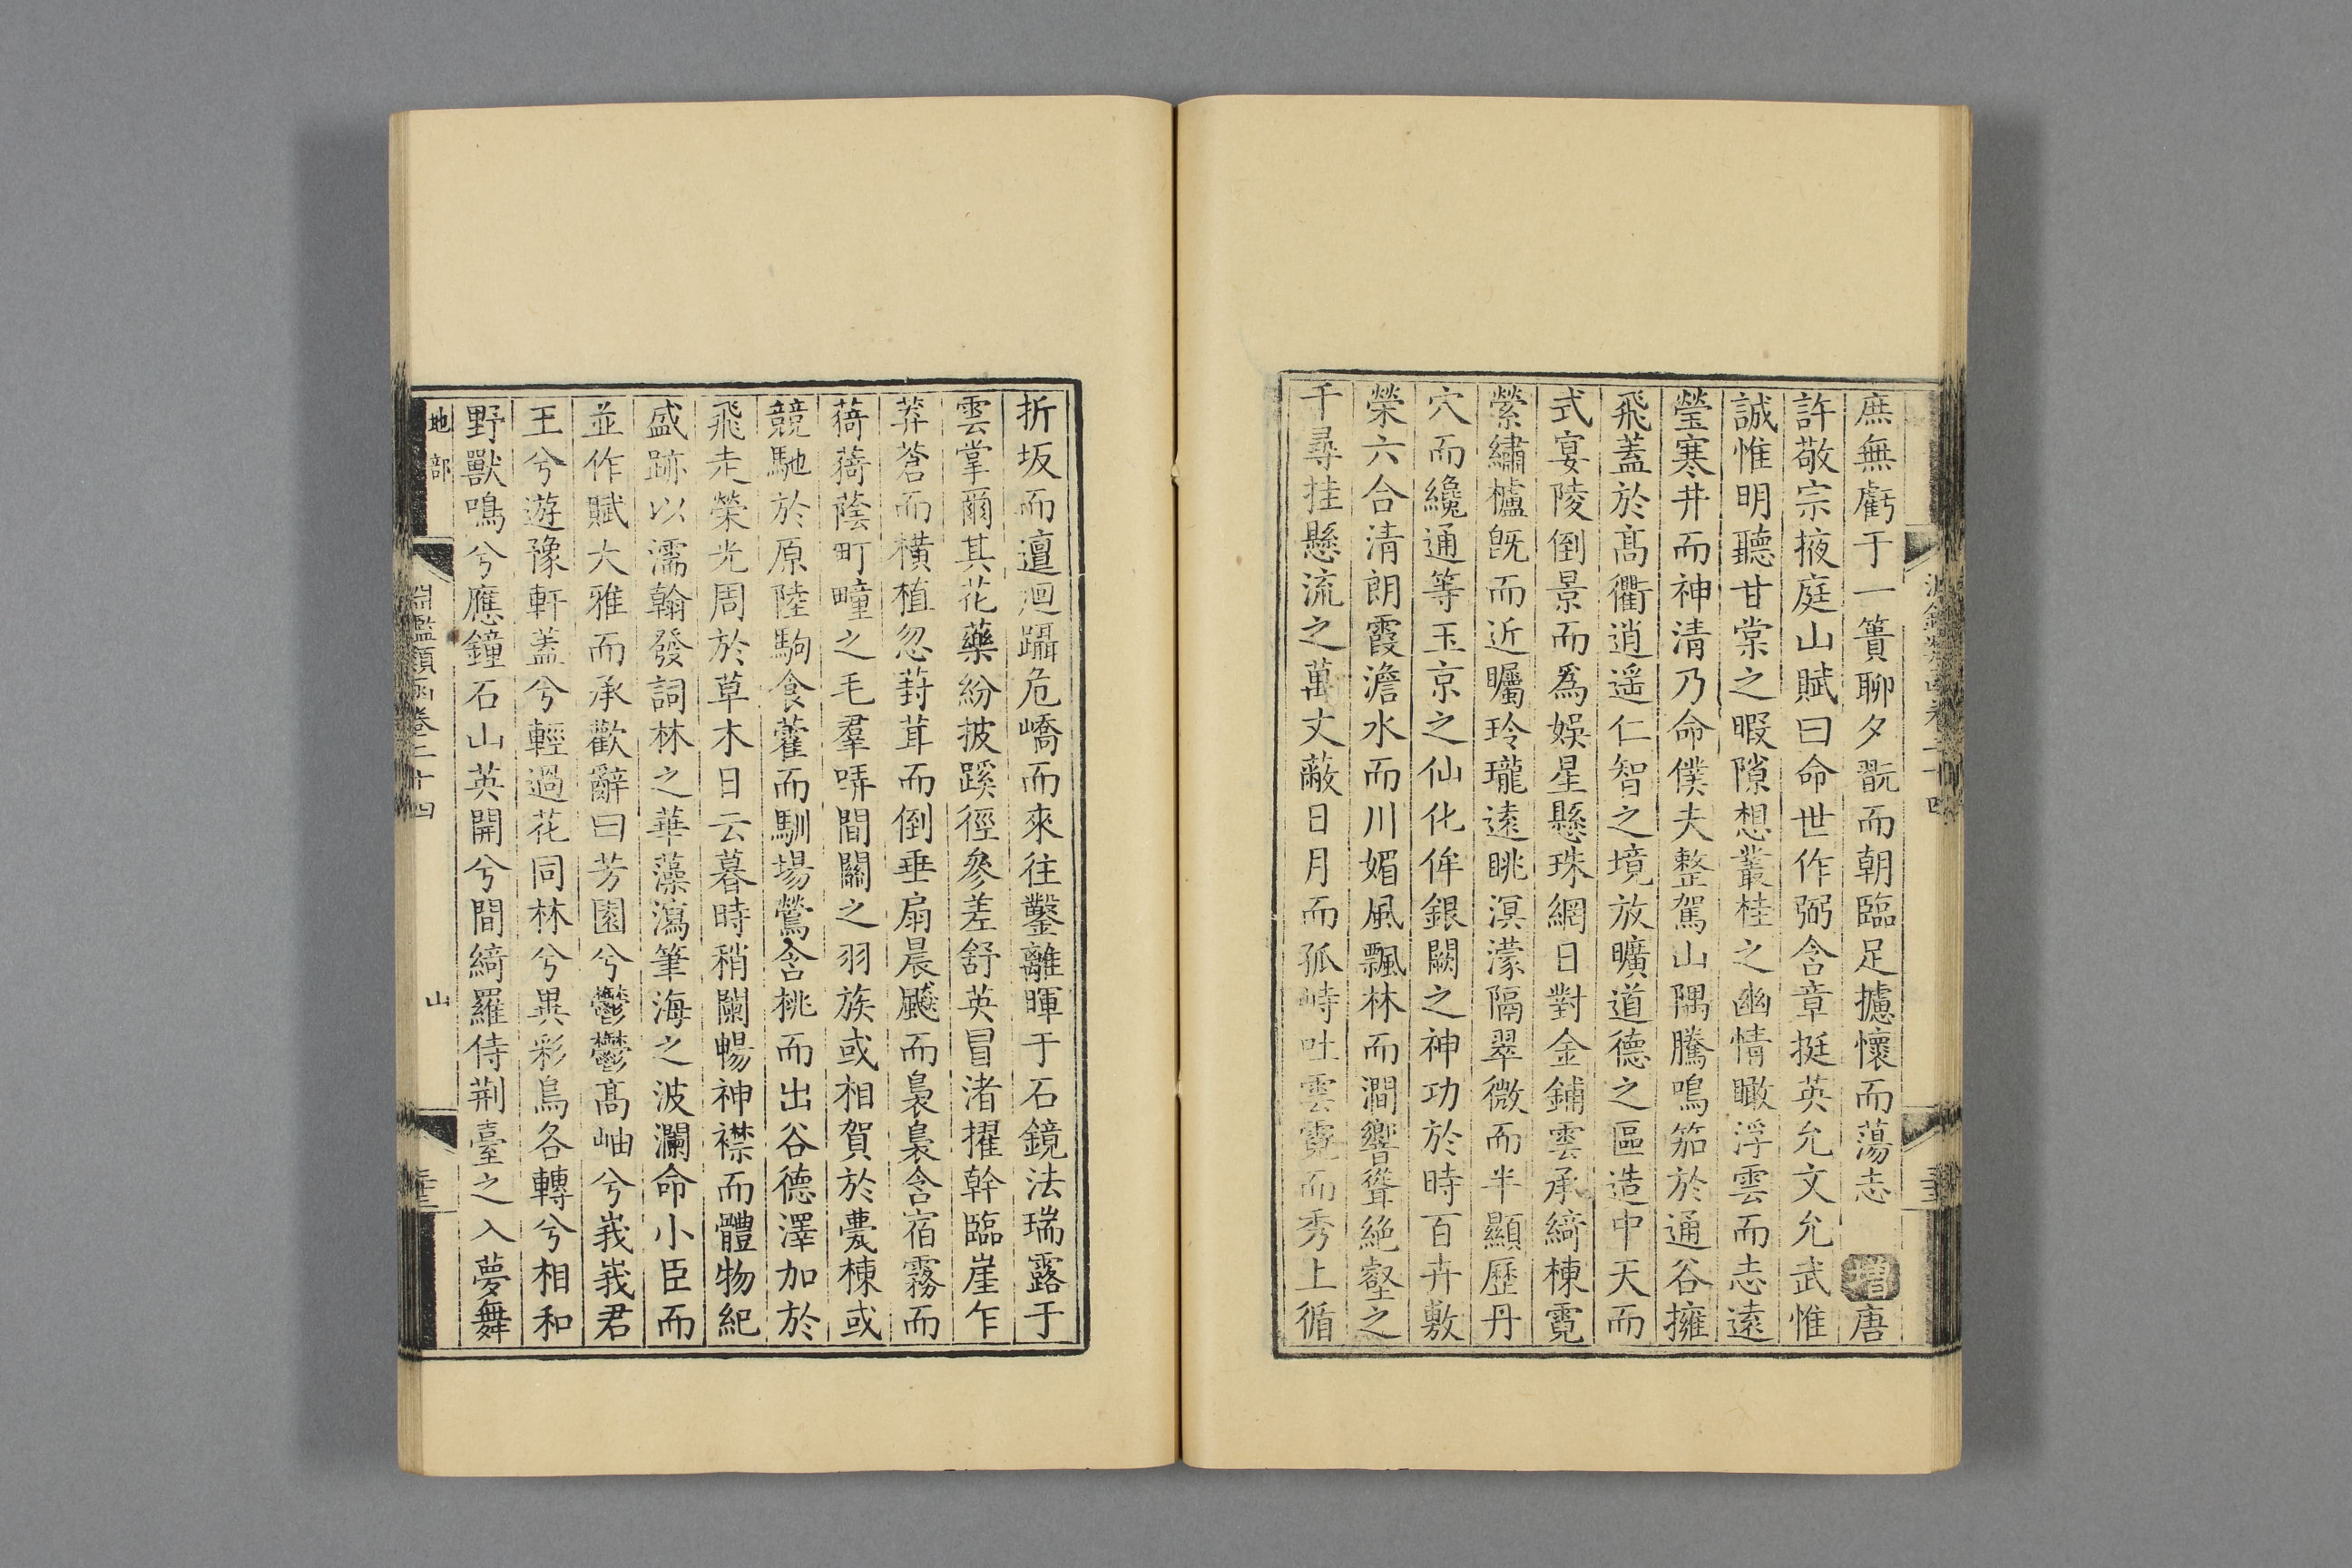 庶無虧于一簣聊夕翫而朝臨足攄懷而蕩志 增唐
許敬宗掖庭山賦曰命世作弼含章挺英允文允武惟
誠惟明聽甘棠之暇隙想叢桂之幽情瞰浮雲而志遠
瑩寒井而神清乃命僕夫整駕山隅騰鳴笳於通谷擁
飛蓋於高衢逍遥仁智之境放曠道德之區造中天而
式宴陵倒景而爲娛星懸珠網日對金鋪雲承綺棟霓
縈繡櫨旣而近矚玲瓏遠眺溟濛隔翠微而半顯歷丹
穴而纔通等玉京之仙化侔銀闕之神功於時百卉敷
榮六合清朗霞澹水而川媚風飄林而澗響聳絶壑之
千尋挂懸流之萬丈蔽日月而孤峙吐雲霓而秀上循
折坂而邅迴躡危嶠而來往鑿離暉于石鏡法瑞露于
雲掌爾其花藥紛披蹊徑參差舒英冒渚擢幹臨崖乍
莽蒼而橫植忽葑茸而倒垂扇晨飈而裊裊含宿霧而
蓨蓨蔭町疃之毛羣哢間關之羽族或相賀於甍棟或
競馳於原陸駒食藿而馴場鶯含桃而出谷德澤加於
飛走榮光周於草木日云暮時稍闌暢神襟而體物紀
盛跡以濡翰發詞林之華藻瀉筆海之波瀾命小臣而
並作賦大雅而承歡辭曰芳園兮鬱鬱高岫兮峩峩君
王兮遊豫軒蓋兮輕過花同林兮異彩鳥各轉兮相和
野獸鳴兮應鐘石山英開兮間綺羅侍荆臺之入夢舞
地部 淵鑑類函卷二十四 山